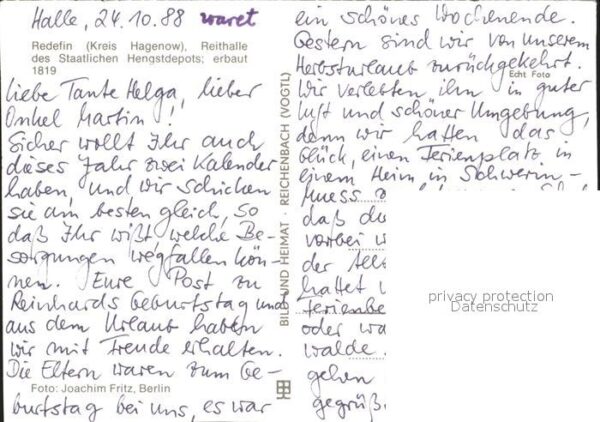 Halle, 24.10.88 waret
Redefin (Kreis Hagenow), Reithalle
des Staatlichen Hengstdepots; erbaut
1819
Liebe Tante Helga, lieber
Onkel Martin!
Sicher wollt Ihr auch
dieses Jahr zwei Kalender
haben, und wir schicken
sie am besten gleich, so
daß Ihr wißt, welche Be-
sorgungen wegfallen kön-
nen. Eure Post zu
Reinhards Geburtstag und
aus dem Urlaub haben
wir mit Freude erhalten.
Die Eltern waren zum Ge-
Foto: Joachim Fritz, Berlin
burtstag bei uns, es war
BILD UND HEIMAT · REICHENBACH (VOGTL)
ein schönes Wochenende.
Gestern sind wir von unserem
Herbsturlaub zurückgekehrt.
Echt Foto
Wir verlebten ihn in guter
Luft und schöner Umgebung,
denn wir hatten das
Glück, einen Ferienplatz in
einem Heim in Schwerin-
Muess
daß du
vorbei
der
hattet
Ferienbe
oder wa
walde.
gehen
gegrüß
privacy protection
Datenschutz